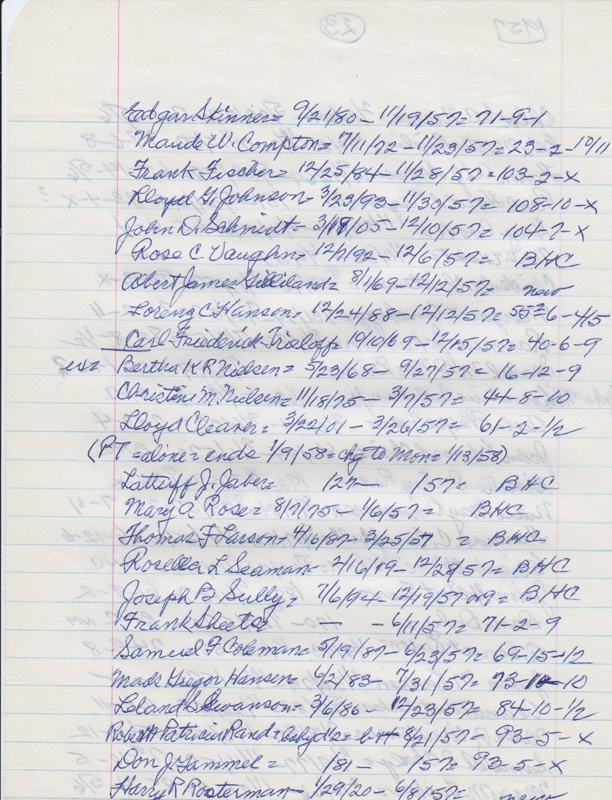 1957 23
Edgar Skinner = 9/21/80 - 11/19/57 = 71-9-1
Maude W. Compton = 7/11/72 - 11/23/57 = 23-2-10/11
Frank Fischer = 12/25/84 - 11/28/57 = 103-2-X
Lloyd G. Johnson - 3/23/93 - 11/30/57 = 108-10-X
John D. Schmidt = 3/18/05 - 12/10/57 = 104-7-X
Rose C Vaughn = 12/1/92 - 12/6/57 = BHC
Albert James Gilliland = 8/1/69 - 12/12/57 = new
Loreng C Hanson = 12/24/88 - 12/12/57 = 6-4/5
Carl Friederick = 10/10/69 - 12/15/57 = 40-6-9
Bertha K R Nielsen = 5/23/68 - 9/27/57 = 16-12-9
Christine M. Nielsen = 11/18/75 - 3/7/57 = 44-8-10
Lloyd Cleaver = 3/22/01 - 3/26/57 = 61-2-1/2
(PT = alone = ends 1/9/58 = chg to Mon = 1/13/58)
J. Jaber = /27 - /57 = BHC
Mary A. Rose = 8/7/75 - 1/6/57 = BHC
Thomas F Larson = 4/16/87 - 3/25/57 = BHC
Rosella L Seaman - 2/16/19 - 12/28/57 = BHC
Joseph B Sully = 7/6/94 - 12/19/57 = BHC
Frank Sheets - - 6/11/57 = 71-2-9
Samuel F Coleman = 5/19/87 - 6/23/57 = 69-15-12
Mads Gregor Hansen = 6/2/83 - 7/31/57 = 73-10-10
Leland S Swanson = 3/6/86 - 12/23/57 = 84-10-1/2
Robert Patricia Rand = baby = 8/21/57 = 93-5-X
Don J. Gammel = /81 - /57 = 93-5-X
Harry R Rosterman - 1/29/20 - 6/8/57 = new